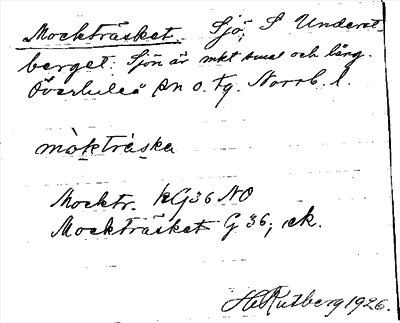 Mockträsket. Sjö, S Underst-
berget. Sjön är mkt smal och lång.
Överluleå sn o. tg. Norrb. l.
mòktráska
Mocktr. kG36 NO
Mockträsket G 36, ek.
H Rutberg 1926.